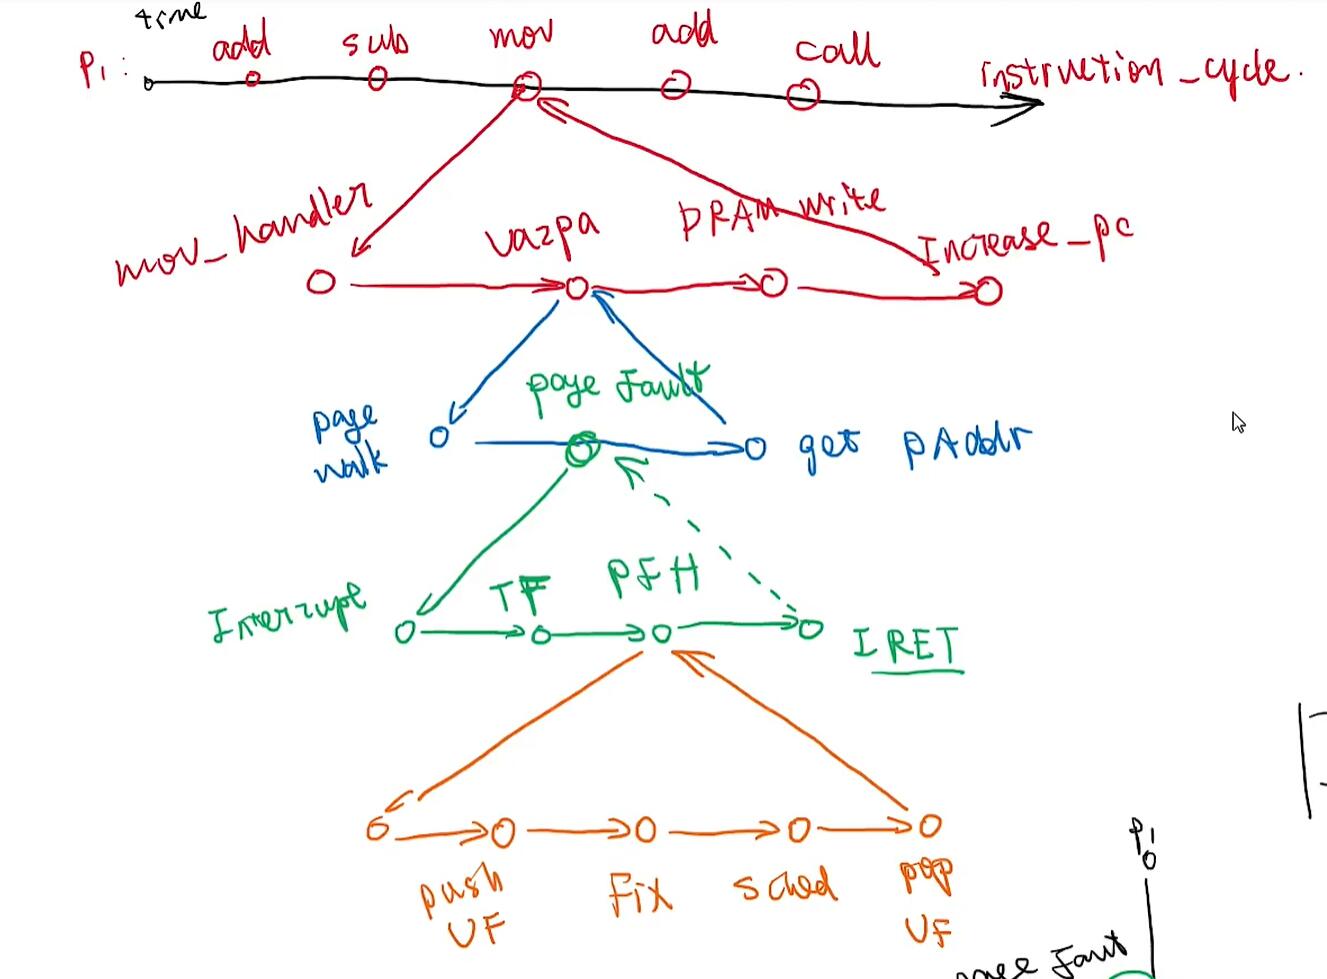 time
P1: add sub mov add call instruction_cycle.
mov_handler va2pa DRAM write Increase_pc
page fault
page walk
get pAddr
Interrupt TF PFH IRET
push UF
fix
sched
pop UF
P1
page Fault